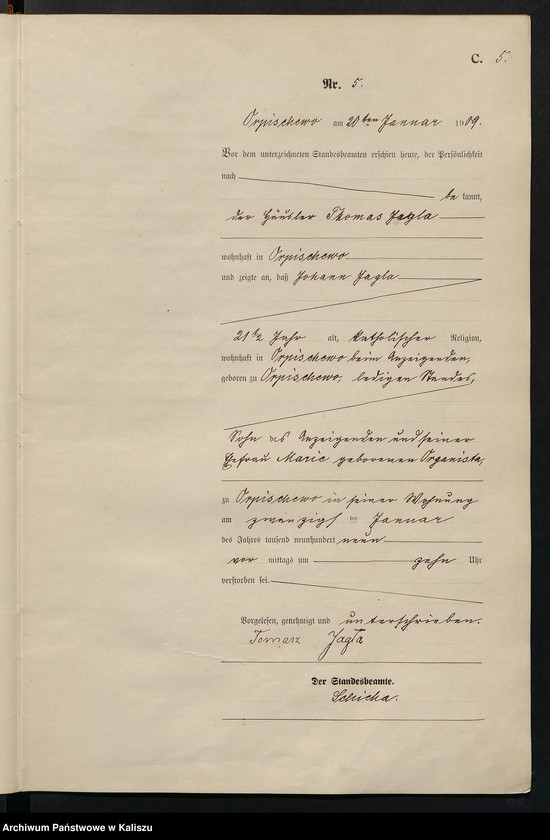 C. 5.
Nr. 5.
Orpischewo am 20ten Januar 1909.
Vor dem unterzeichneten Standesbeamten erschien heute, der Persönlichkeit
nach
be kannt,
der Häusler Thomas Jagla
wohnhaft in Orpischewo
und zeigte an, daß Johann Jagla
21 1/2 Jahr alt, katholischer Religion,
wohnhaft in Orpischewo beim Anzeigenden,
geboren zu Orpischewo, ledigen Standes,
Sohn des Anzeigenden und seiner
Ehefrau Marie geborenen Organista,
zu Orpischewo in seiner Wohnung
am zwanzigsten Januar
des Jahres tausend neunhundert neun
vor mittags um zehn Uhr
verstorben sei.
Vorgelesen, genehmigt und unterschrieben.
Tomasz Jagła
Der Standesbeamte.
Archiwum Państwowe w Kaliszu